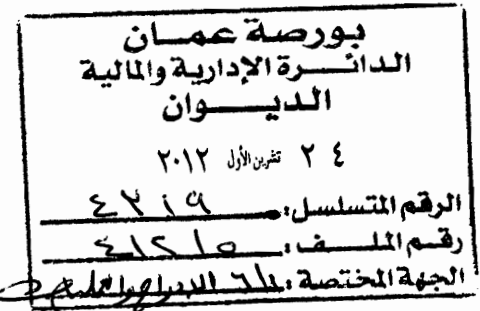 بورصة عمان
الدائرة الإدارية والمالية
الديوان
٢٤ تشرين الأول ٢٠١٢
الرقم المتسلسل: ٤٣١٩
رقم الملف: ٤١٢١٥
الجهة المختصة: